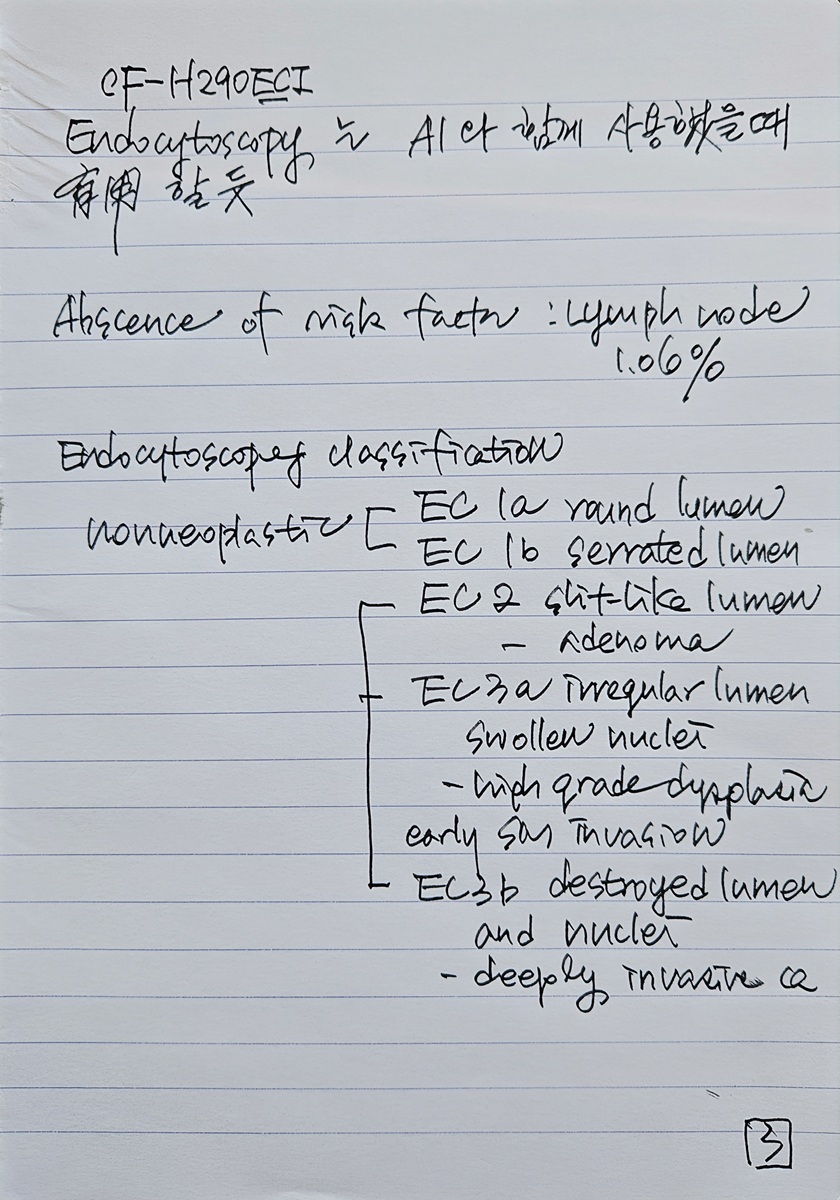 CF-H290ECI
Endocytoscopy 는 AI와 함께 사용했을때
有用 할 듯
Abscence of risk factor : Lymph node
1.06%
Endocytoscopy classification
nonneoplastic [ EC 1a round lumen
EC 1b serrated lumen
EC2 slit-like lumen
- adenoma
EC3a irregular lumen
swollen nuclei
- high grade dysplasia
early sm invasion
EC3b destroyed lumen
and nuclei
- deeply invasive ca
3